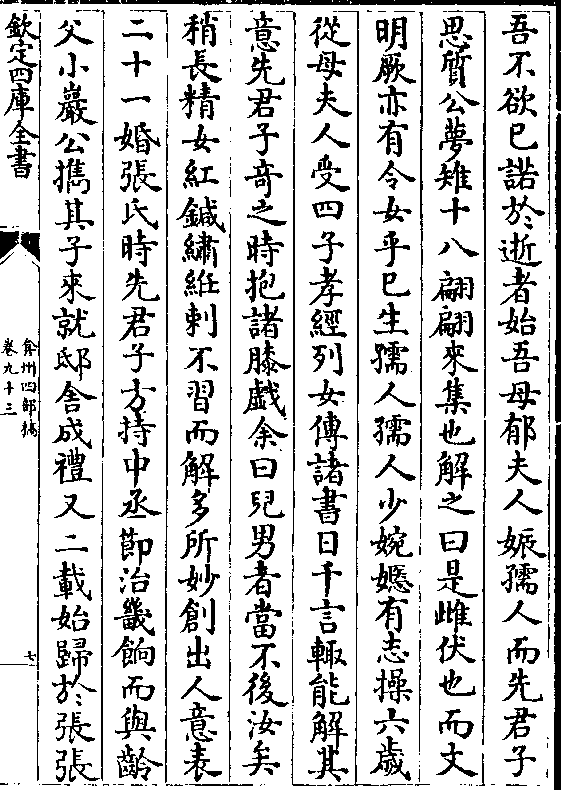 吾不欲已諾於逝者始吾母郁夫人娠孺人而先君子
思質公夢雉十八翩翩來集也解之曰是雌伏也而文
明厥亦有令女乎已生孺人孺人少婉嫕有志操六歲
從母夫人受四子孝經列女傳諸書日千言輙能解其
意先君子竒之時抱諸膝戲余曰兒男者當不後汝矣
稍長精女紅鍼繡絍刺不習而解多所妙創出人意表
二十一婚張氏時先君子方持中丞節治畿餉而與齡
父小巖公擕其子來就邸舍成禮又二載始歸於張張
欽定四庫全書
弇州四部稿
卷九十三
七